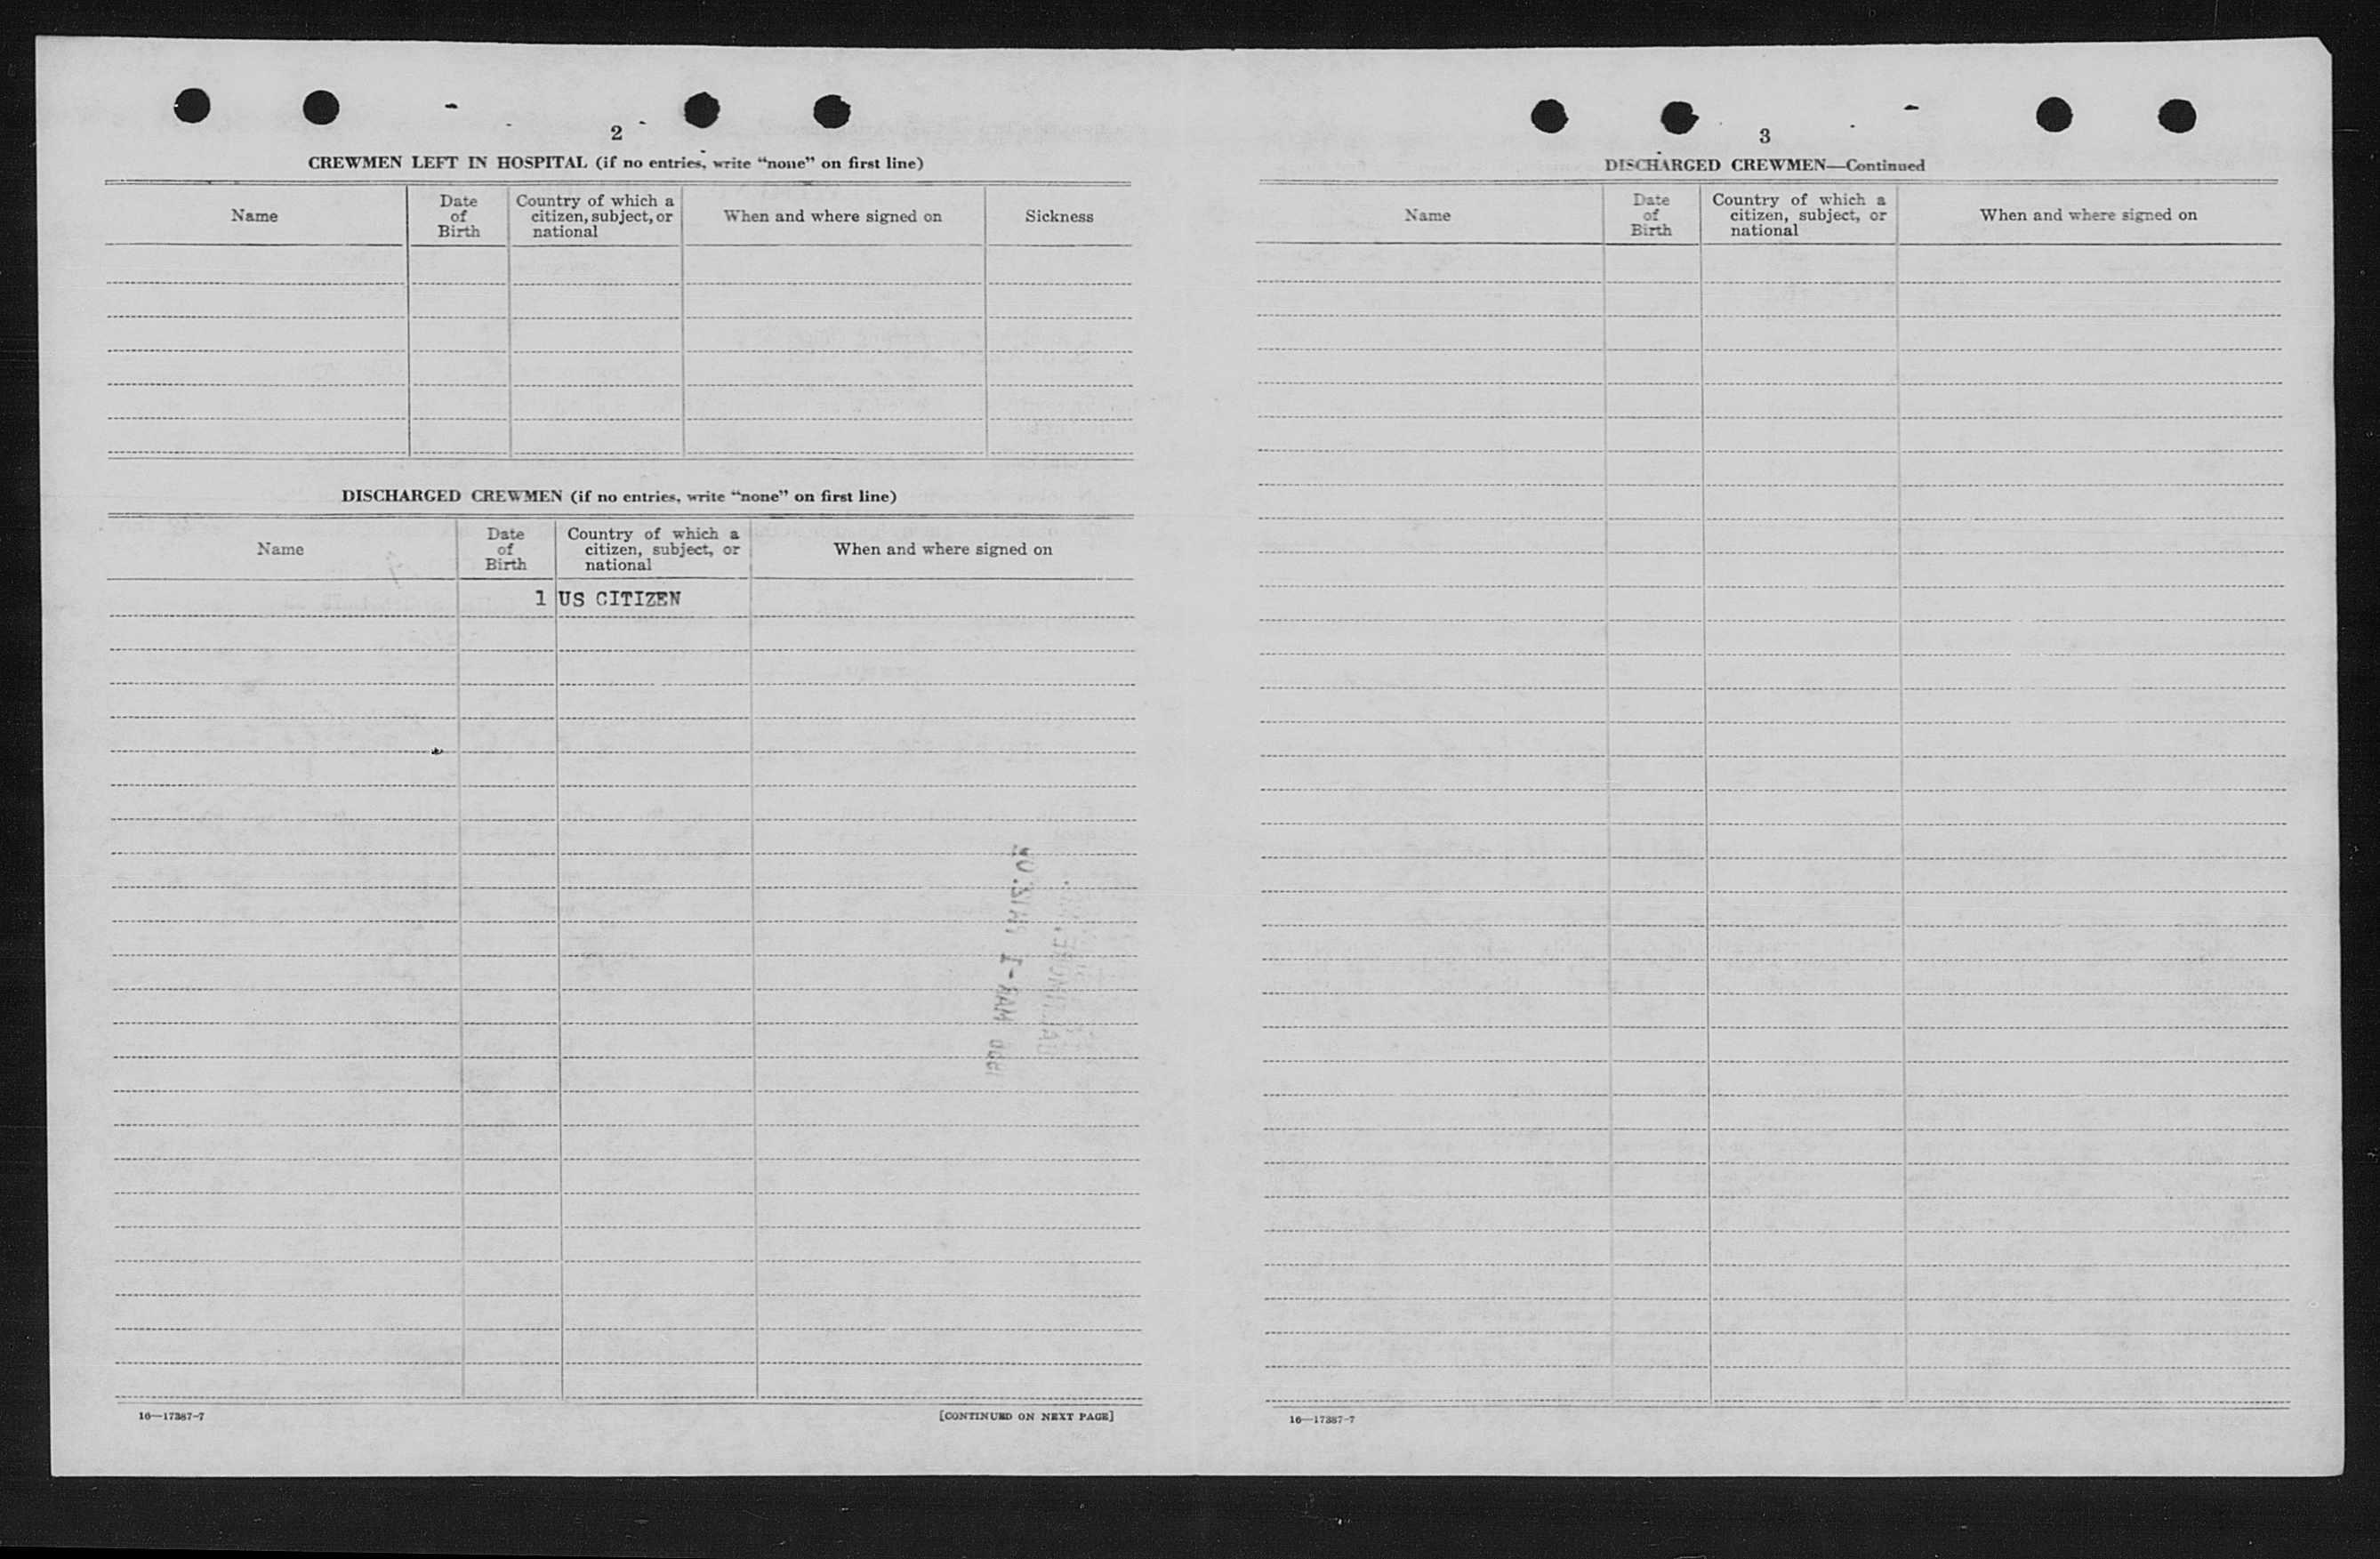 2
CREWMEN LEFT IN HOSPITAL (if no entries, write “none” on first line)
Name
Date of Birth
Country of which a citizen, subject, or national
When and where signed on
Sickness
DISCHARGED CREWMEN (if no entries, write “none” on first line)
Name
Date of Birth
Country of which a citizen, subject, or national
When and where signed on
1 US CITIZEN
16—17387-7
[CONTINUED ON NEXT PAGE]
3
DISCHARGED CREWMEN—Continued
Name
Date of Birth
Country of which a citizen, subject, or national
When and where signed on
16—17387-7